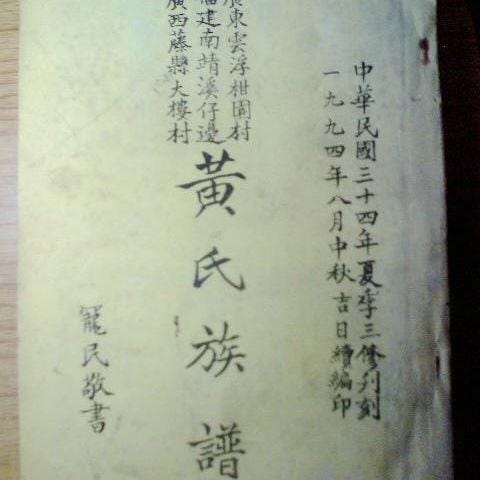 中華民國三十四年夏季三修刋刻
一九九四年八月中秋吉日續編印
廣東雲浮柑園村
福建南靖溪仔邊
廣西藤縣大樓村
黃氏族譜
寵民敬書